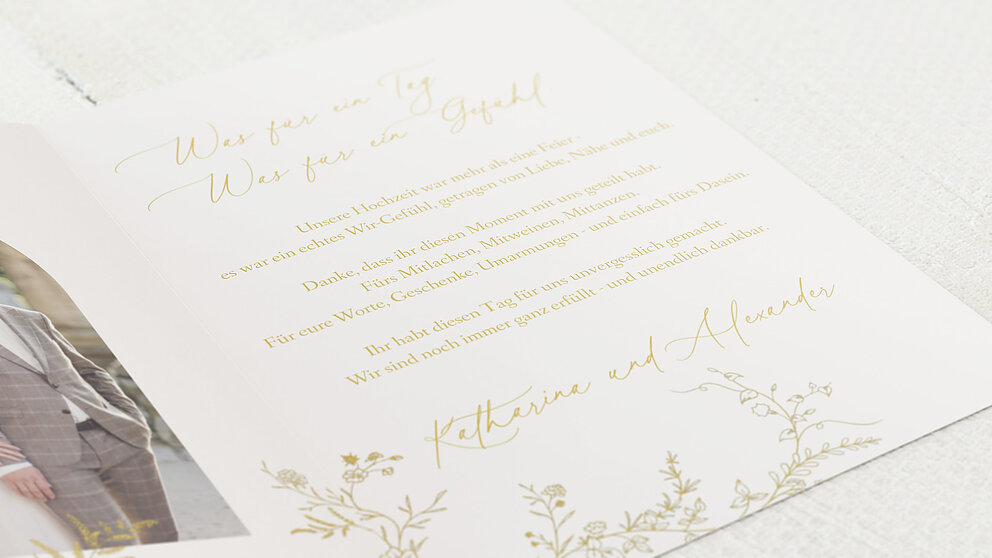 Was für ein Tag
Was für ein Gefühl
Unsere Hochzeit war mehr als eine Feier,
es war ein echtes Wir-Gefühl, getragen von Liebe, Nähe und euch.
Danke, dass ihr diesen Moment mit uns geteilt habt.
Fürs Mitlachen, Mitweinen, Mittanzen.
Für eure Worte, Geschenke, Umarmungen - und einfach fürs Dasein.
Ihr habt diesen Tag für uns unvergesslich gemacht.
Wir sind noch immer ganz erfüllt - und unendlich dankbar.
Katharina und Alexander